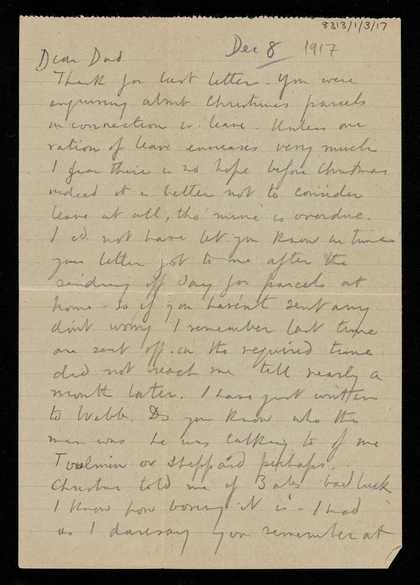 8313/1/3/17
Dec 8 1917
Dear Dad
Thank for last letter. You were
enquiring about Christmas parcels
in connection w. leave. Unless our
ration of leave increases very much
I fear there is no hope before Christmas
indeed it is better not to consider
leave at all, tho' mine is overdue.
I cd. not have let you know in time
your letter got to me after the
sending off day for parcels at
home - so if you haven't sent any
dont worry. I remember last time
one sent off in the required time
did not reach me till nearly a
month later. I have just written
to Webb. Do you know who the
man was he was talking to of me
Toulmin or Sheppard perhaps.
told me of bad luck
I know how boring it is - I had
as I daresay you remember at